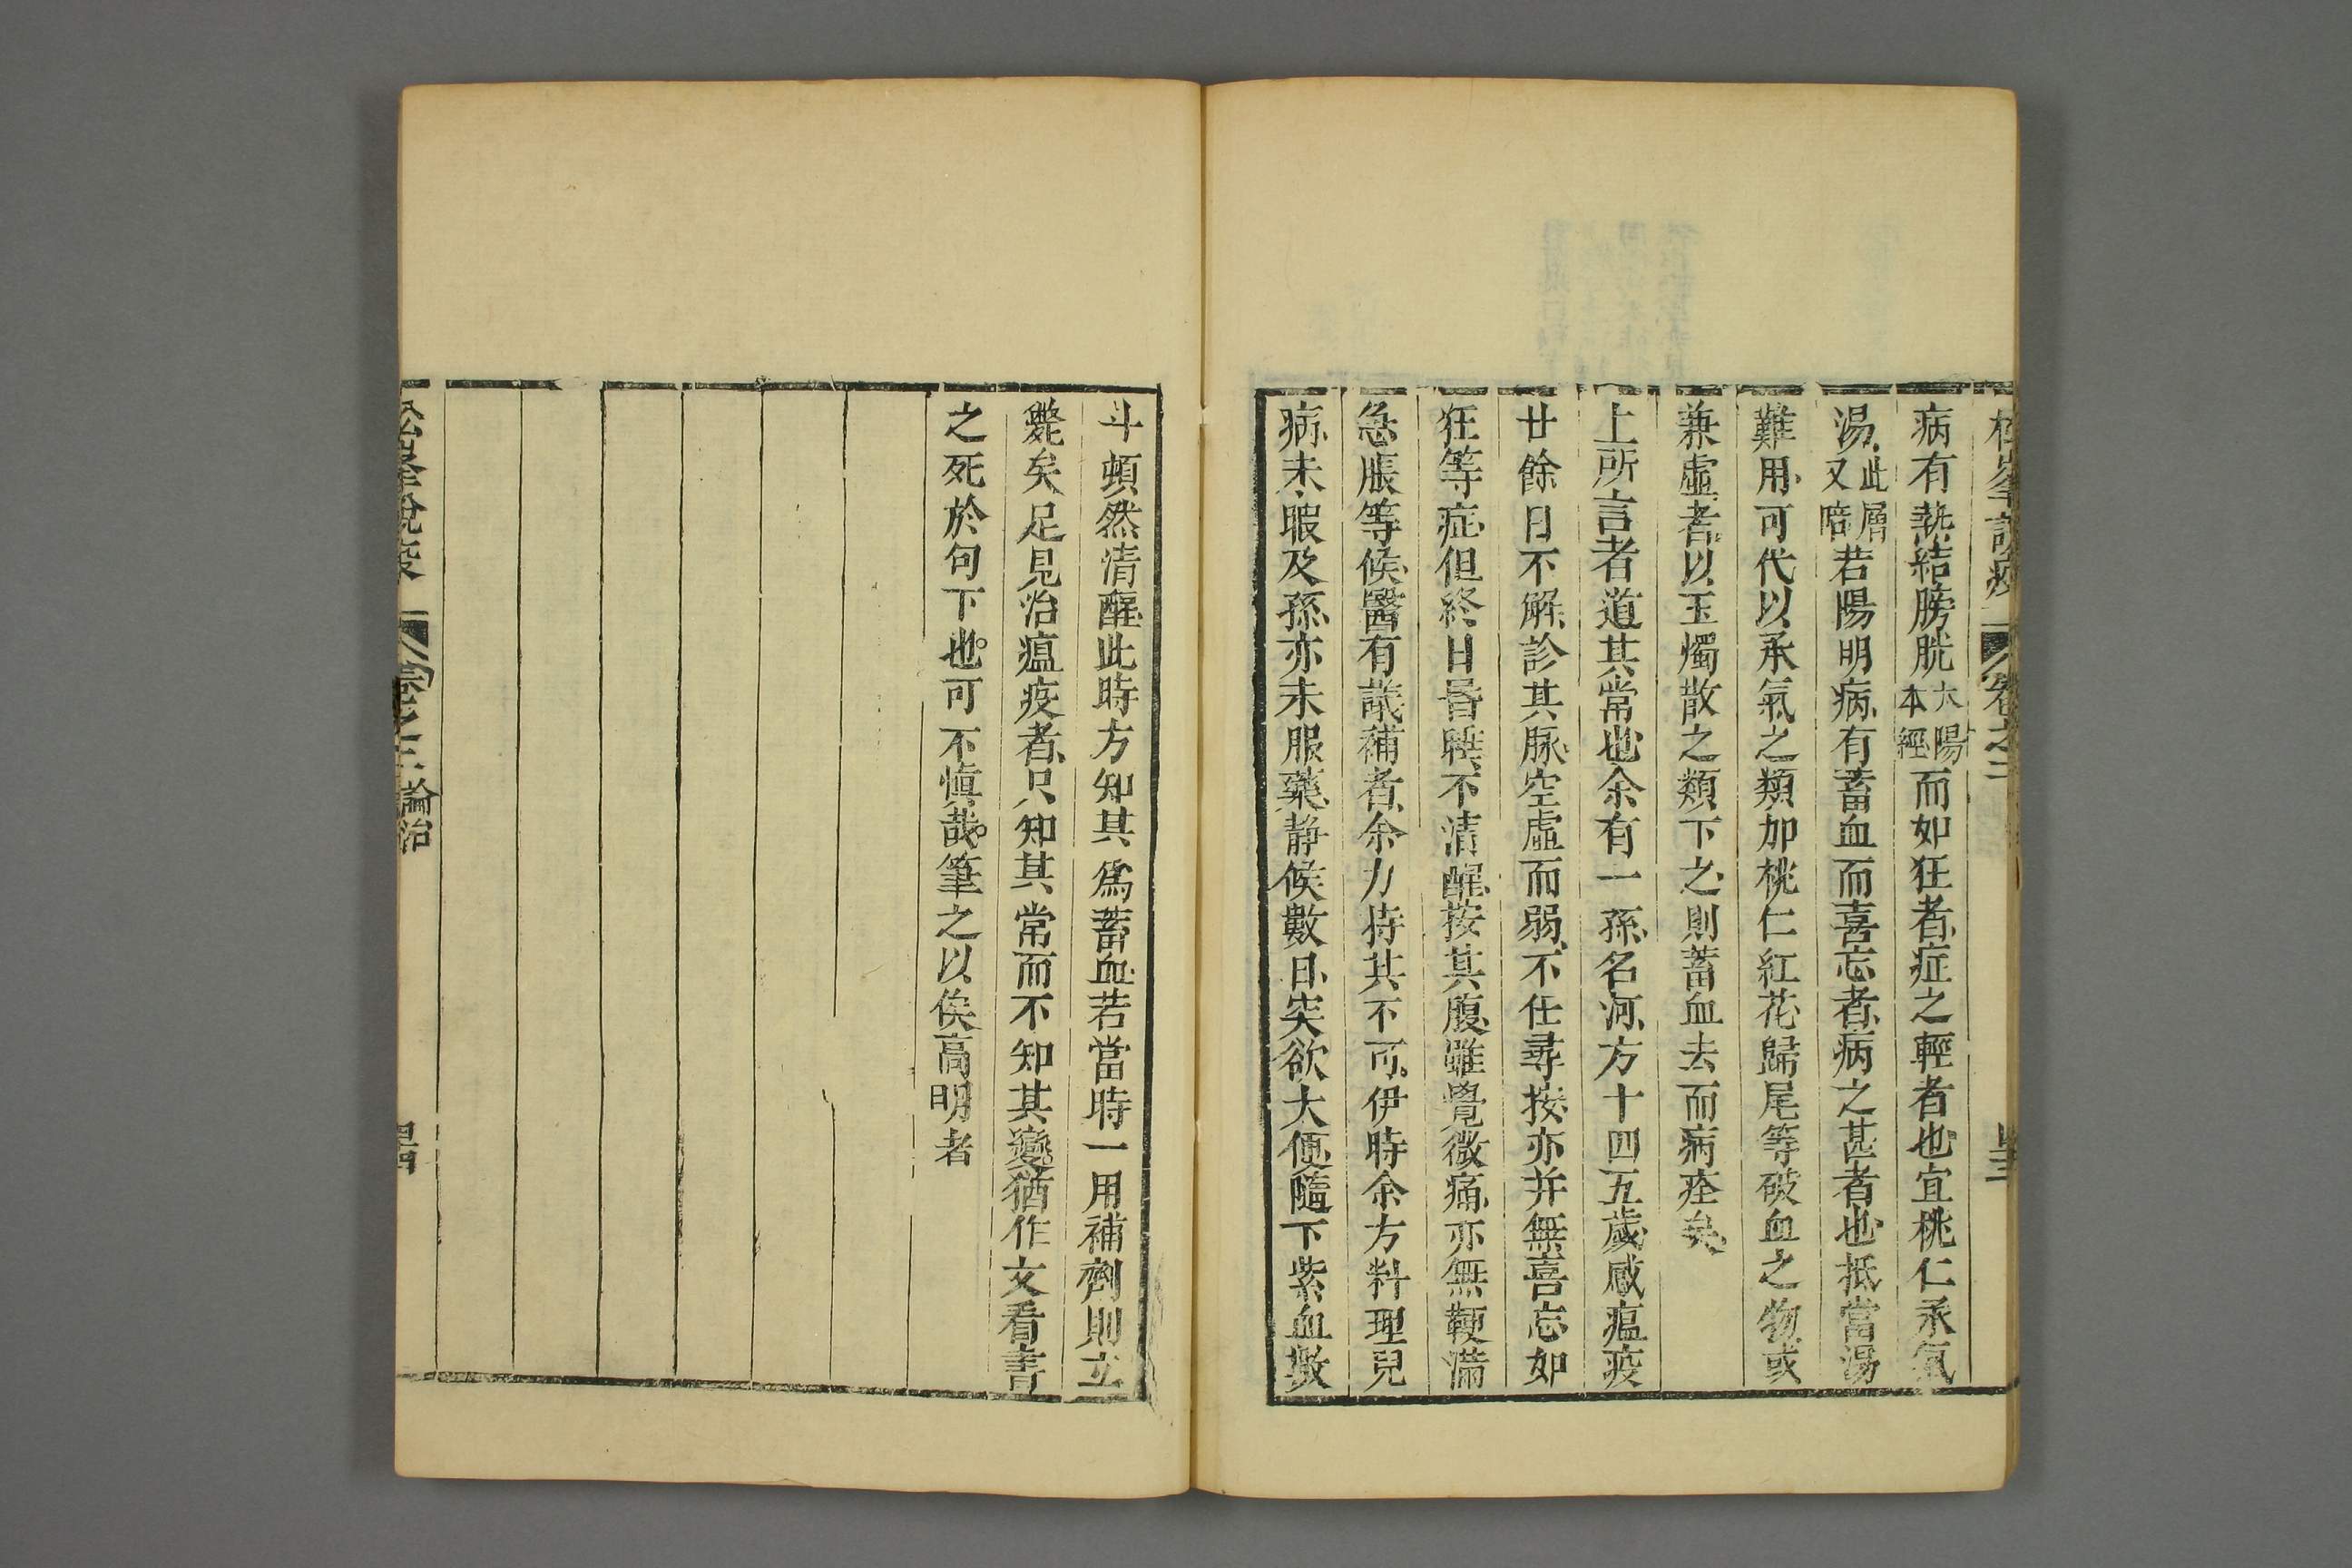 松峯說疫
卷之二
病有熱結膀胱太陽本經而如狂者症之輕者也宜桃仁承氣
湯此層又暗若陽明病有蓄血而喜忘者病之甚者也抵當湯
難用可代以承氣之類加桃仁紅花歸尾等破血之物或
兼虛者以玉燭散之類下之則蓄血去而病痊矣
上所言者道其常也余有一孫名河方十四五歲感瘟疫
廿餘日不解診其脉空虛而弱不任尋按亦并無喜忘如
狂等症但終日昏睡不清醒按其腹雖覺微痛亦無鞕滿
急脹等候醫有議補者余力持其不可伊時余方料理兒
病未暇及孫亦未服藥靜候數日突欲大便隨下紫血數
斗頓然清醒此時方知其爲蓄血若當時一用補劑則立
斃矣足見治瘟疫者只知其常而不知其變猶作文看書
之死於句下也可不愼哉筆之以俟高明者
松峯說疫
卷之二論治